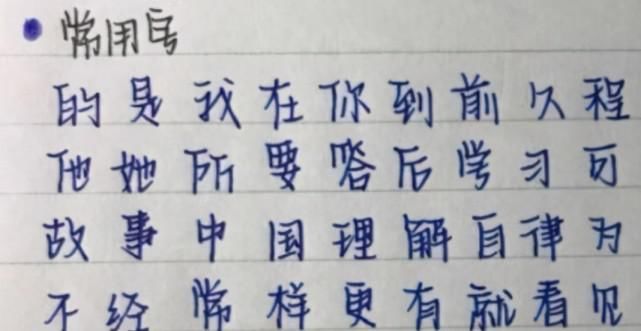 常用字
的是我在你到前久程
他她所要答后学习可
故事中国理解自律为
不经常样更有就看见